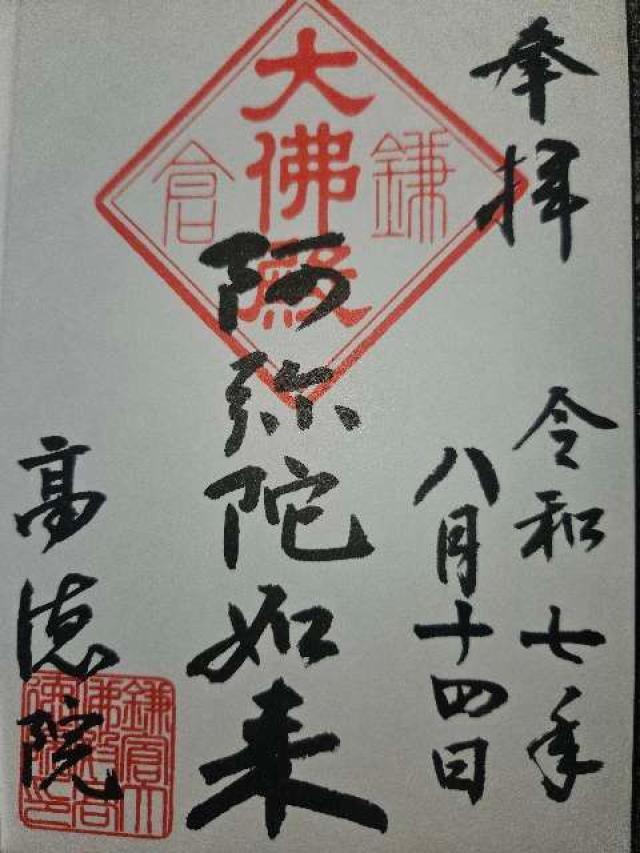 奉拝
令和七年
八月十四日
鎌倉
大佛殿
阿弥陀如来
高徳院